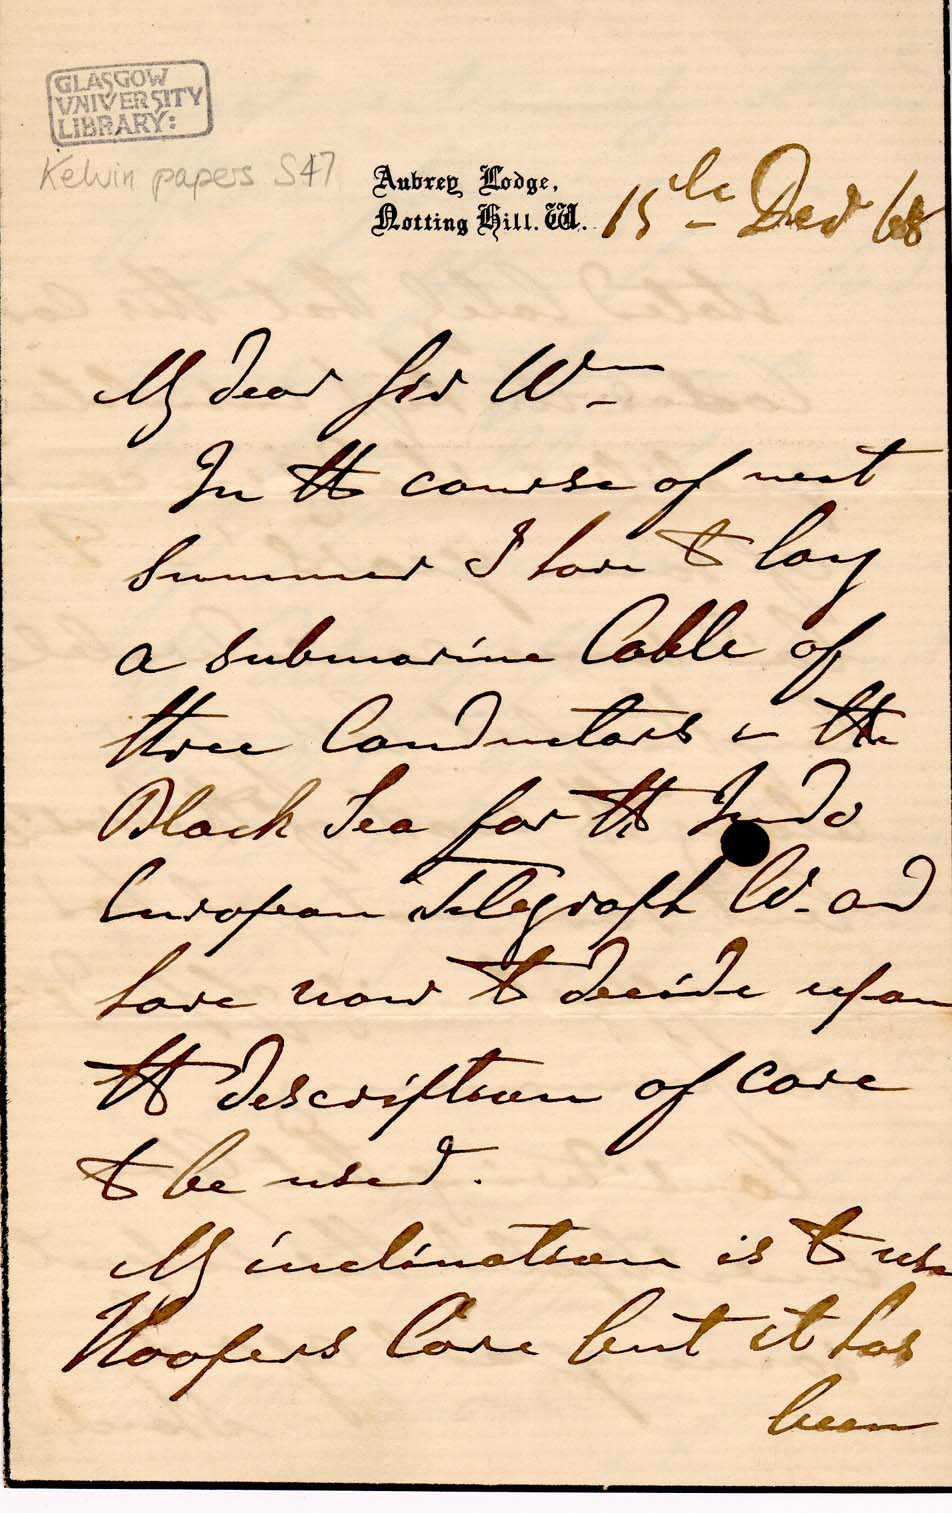 GLASGOW
VNIVERSITY
LIBRARY:
Kelvin papers S47
Aubrey Lodge,
Notting Hill. W. 15th Decr 68
My dear Sir Wm
In the course of next
summer I have to lay
a submarine Cable of
three Conductors in the
Black Sea for the Indo
European Telegraph Co. and
have now to decide upon
the description of core
to be used.
My inclination is to use
Hoopers Core but it has
been